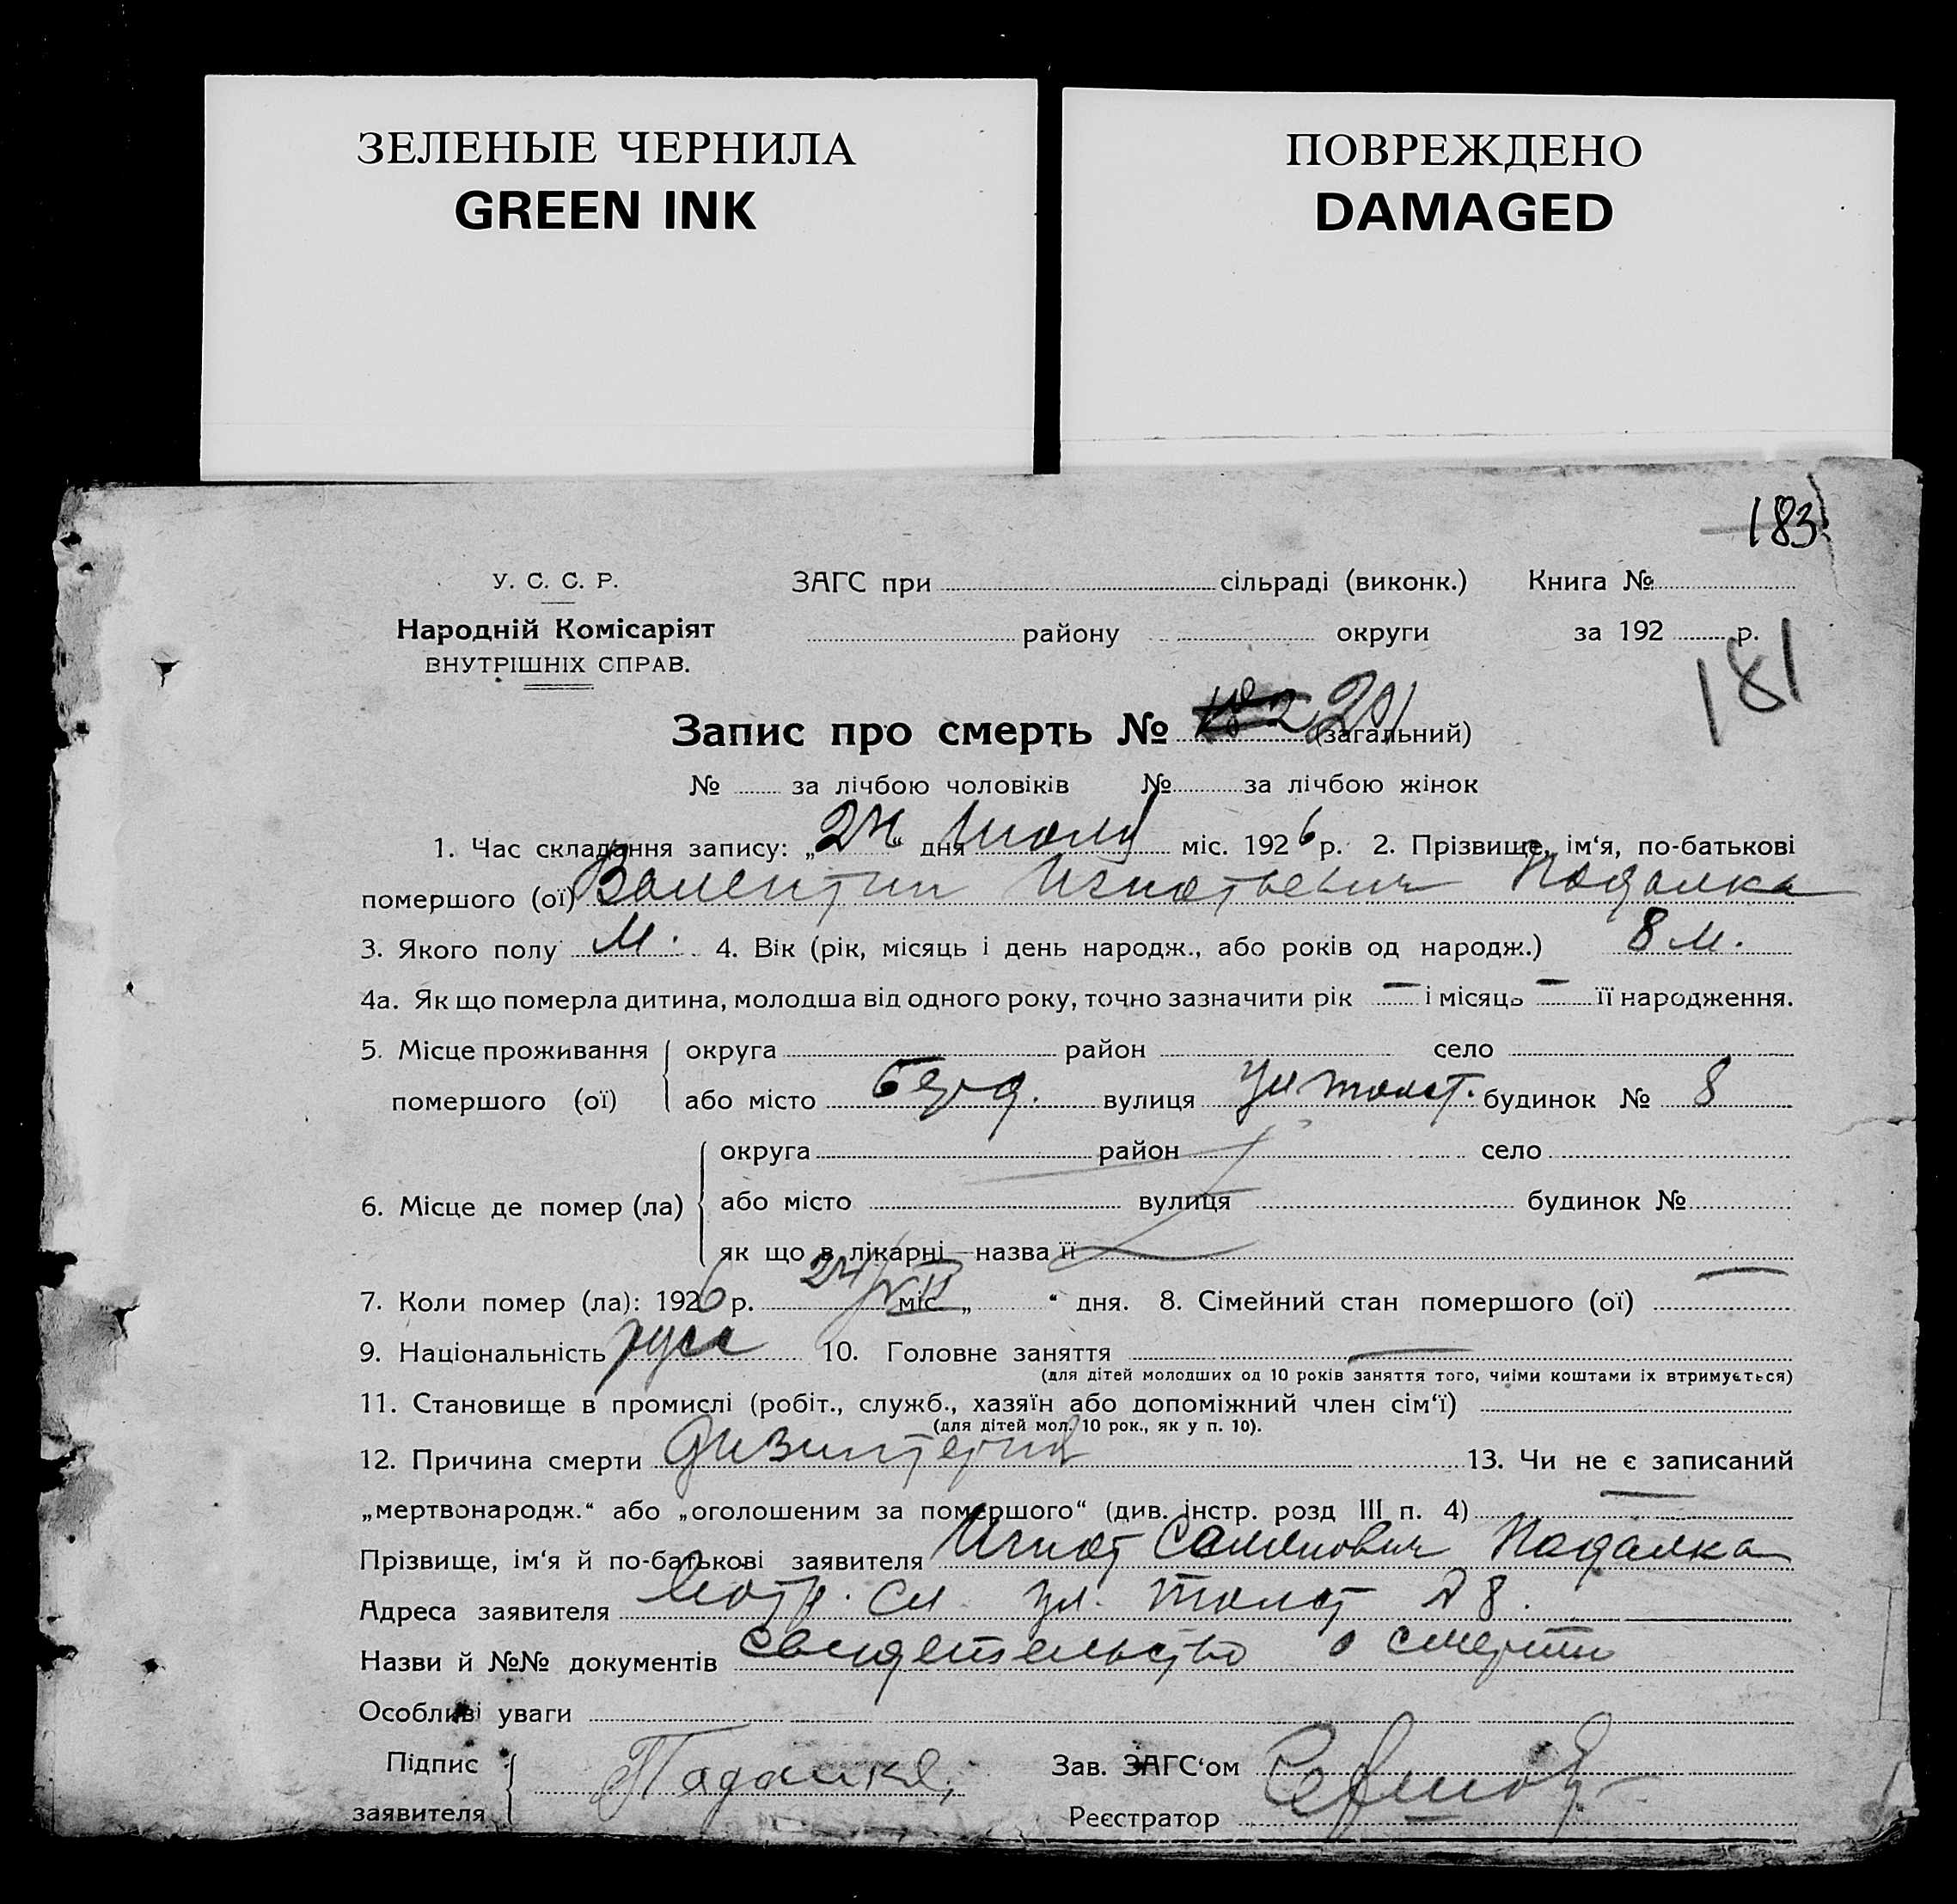 ЗЕЛЕНЫЕ ЧЕРНИЛА
GREEN INK
ПОВРЕЖДЕНО
DAMAGED
183
У. С. С. Р. ЗАГС при сільраді (виконк.) Книга №
Народній Комісаріят району округи за 192 р.
ВНУТРІШНІХ СПРАВ.
181
Запис про смерть № 201 (загальний)
№ за лічбою чоловіків № за лічбою жінок
1. Час складання запису: „24“ дня Июля міс. 1926 р. 2. Прізвище, ім‘я, по-батькові
помершого (ої) Валентин Игнатьевич Падалка
3. Якого полу М. 4. Вік (рік, місяць і день народж., або років од народж.) 8 м.
4а. Як що померла дитина, молодша від одного року, точно зазначити рік — і місяць — її народження.
5. Місце проживання округа район село
помершого (ої) або місто вулиця ул Толст. будинок № 8
округа район село
6. Місце де помер (ла) або місто вулиця будинок №
як що в лікарні—назва її
7. Коли помер (ла): 1926 р. 24/VII міс. „ “ дня. 8. Сімейний стан помершого (ої) —
9. Національність русс 10. Головне заняття —
(для дітей молодших од 10 років заняття того, чиїми коштами їх втримується)
11. Становище в промислі (робіт., служб., хазяїн або допоміжний член сім‘ї)
(для дітей мол. 10 рок., як у п. 10).
12. Причина смерти дизинтерия 13. Чи не є записаний
„мертвонародж.“ або „оголошеним за помершого“ (див. інстр. розд III п. 4) —
Прізвище, ім‘я й по-батькові заявителя Игнат Семенович Падалка
Адреса заявителя сл. ул. Толст № 8.
Назви й №№ документів свидетельство о смерти
Особливі уваги
Підпис Падалка Зав. ЗАГС‘ом
заявителя Реєстратор